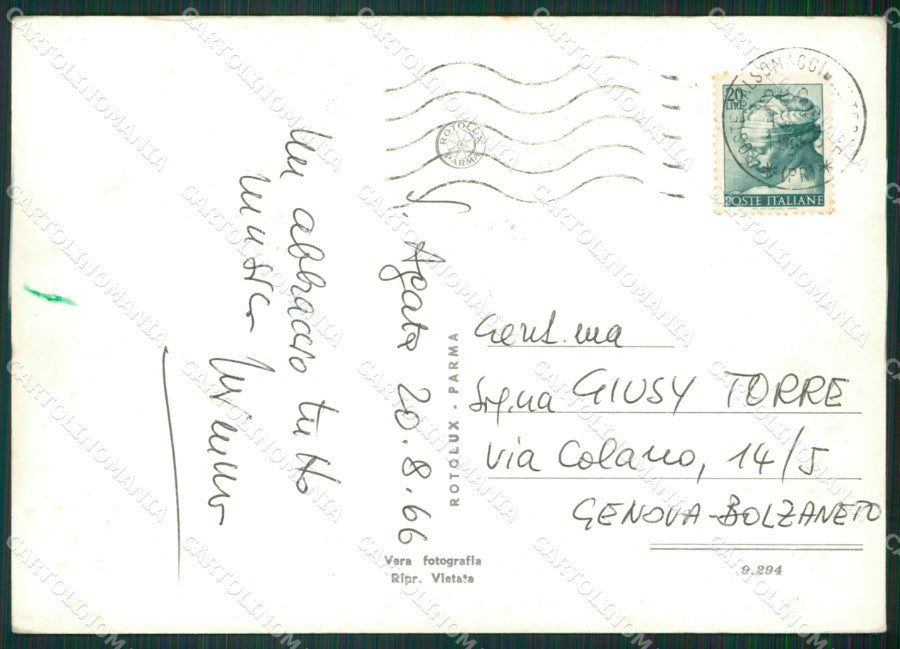 Un abbraccio tutto
S. Agata 20.8.66
ROTOLUX PARMA
20
LIRE
POSTE ITALIANE
Gent.ma
Sig.na GIUSY TORRE
via Colano, 14/5
GENOVA-BOLZANETO
ROTOLUX - PARMA
Vera fotografia
Ripr. Vietata
9.294
CARTOLINOMANIA